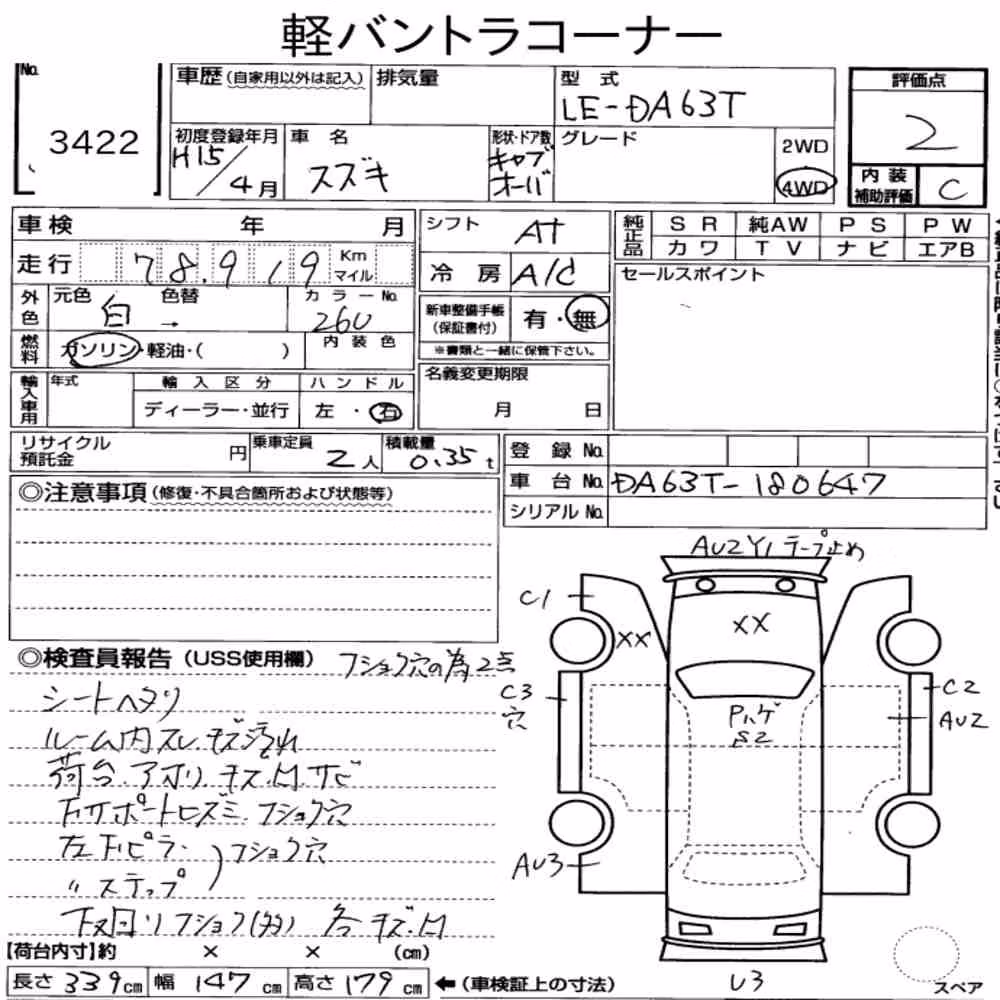 軽バントラコーナー
No. 3422
車歴(自家用以外は記入) 排気量 型式 LE-DA63T
評価点 2
内装補助評価 C
初度登録年月 H15/4月 車名 スズキ 形状・ドア数 キャブオーバ グレード 2WD 4WD
車検 年 月
走行 78,919 Km マイル
外色 元色 白 色替 → カラーNo. 26U
燃料 ガソリン・軽油・( ) 内装色
輸入車用 年式 輸入区分 ディーラー・並行 ハンドル 左・右
シフト At
冷房 A/C
新車整備手帳(保証書付) 有・無
※書類と一緒に保管下さい。
名義変更期限 月 日
純正品 SR 純AW PS PW
カワ TV ナビ エアB
セールスポイント
リサイクル預託金 円 乗車定員 2人 積載量 0.35t
登録No.
車台No. DA63T-180647
シリアルNo.
◎注意事項(修復・不具合箇所および状態等)
◎検査員報告(USS使用欄) フショク穴の為2点
シートヘタリ
ルーム内スレ キズ 汚れ
荷台.アオリ.キズ.凹.サビ
下サポートヒズミ.フショク穴
左下ピラー フショク穴
〃ステップ
下マ回りフショク(多) 各キズ.凹
【荷台内寸】約 × × (cm)
長さ 339cm 幅 147cm 高さ 179cm ←(車検証上の寸法)
AU2 Y1 テープ止め
C1
XX
XX
C3
穴
Pハゲ
S2
C2
AU2
AU3
U3
スペア